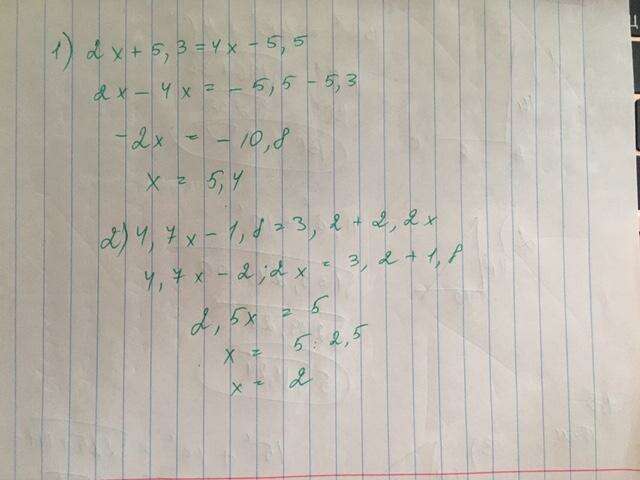 1) 2x + 5,3 = 4x - 5,5
2x - 4x = - 5,5 - 5,3
-2x = - 10,8
x = 5,4
2) 4,7x - 1,8 = 3,2 + 2,2x
4,7x - 2,2x = 3,2 + 1,8
2,5x = 5
x = 5 : 2,5
x = 2